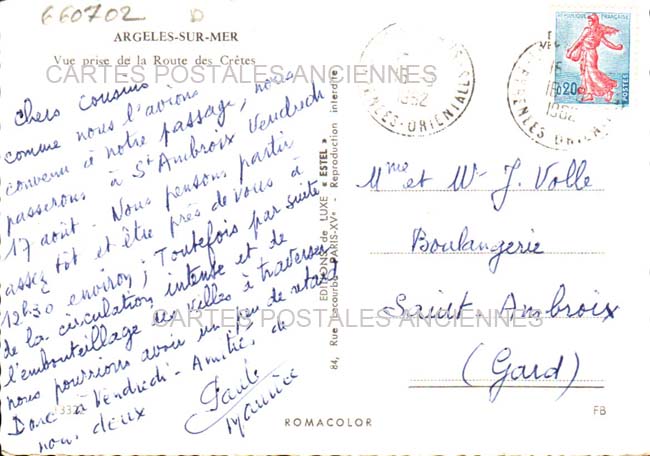 660702 D
ARGELES-SUR-MER
Vue prise de la Route des Crêtes
CARTES POSTALES ANCIENNES
Chers cousins
comme nous l'avions
convenu à notre passage, nous
passerons à St Ambroix Vendredi
17 août. Nous pensons partir
assez tôt et être près de vous à
12h30 environ; Toutefois par suite
de la circulation intense et de
l'embouteillage des villes à traverser
nous pourrions avoir un peu de retard
Donc à Vendredi - Amitiés de
nous deux
Paule
Maurice
332
84, Rue Lecourbe PARIS-XVe
EDITIONS de LUXE "ESTEL"
Reproduction interdite
ROMACOLOR
FB
1962
PYRENEES-ORIENTALES
REPUBLIQUE FRANÇAISE
0,20
POSTES
15
1962
PYRENEES ORIENTALES
Mme et Mr J. Volle
Boulangerie
Saint-Ambroix
(Gard)
CARTES POSTALES ANCIENNES